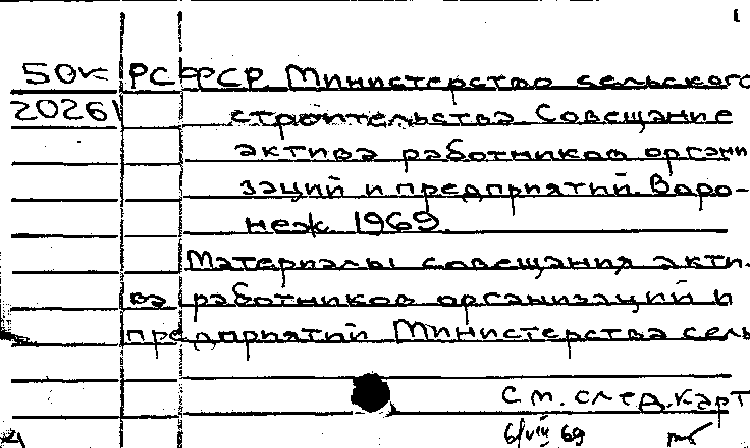 50к РСФСР. Министерство сельского
20261 строительства. Совещание
актива работников органи
заций и предприятий. Воро-
неж 1969.
Материалы совещания акти-
ва работников организаций и
предприятий Министерства сель
см. след. карт
6/VIII 69